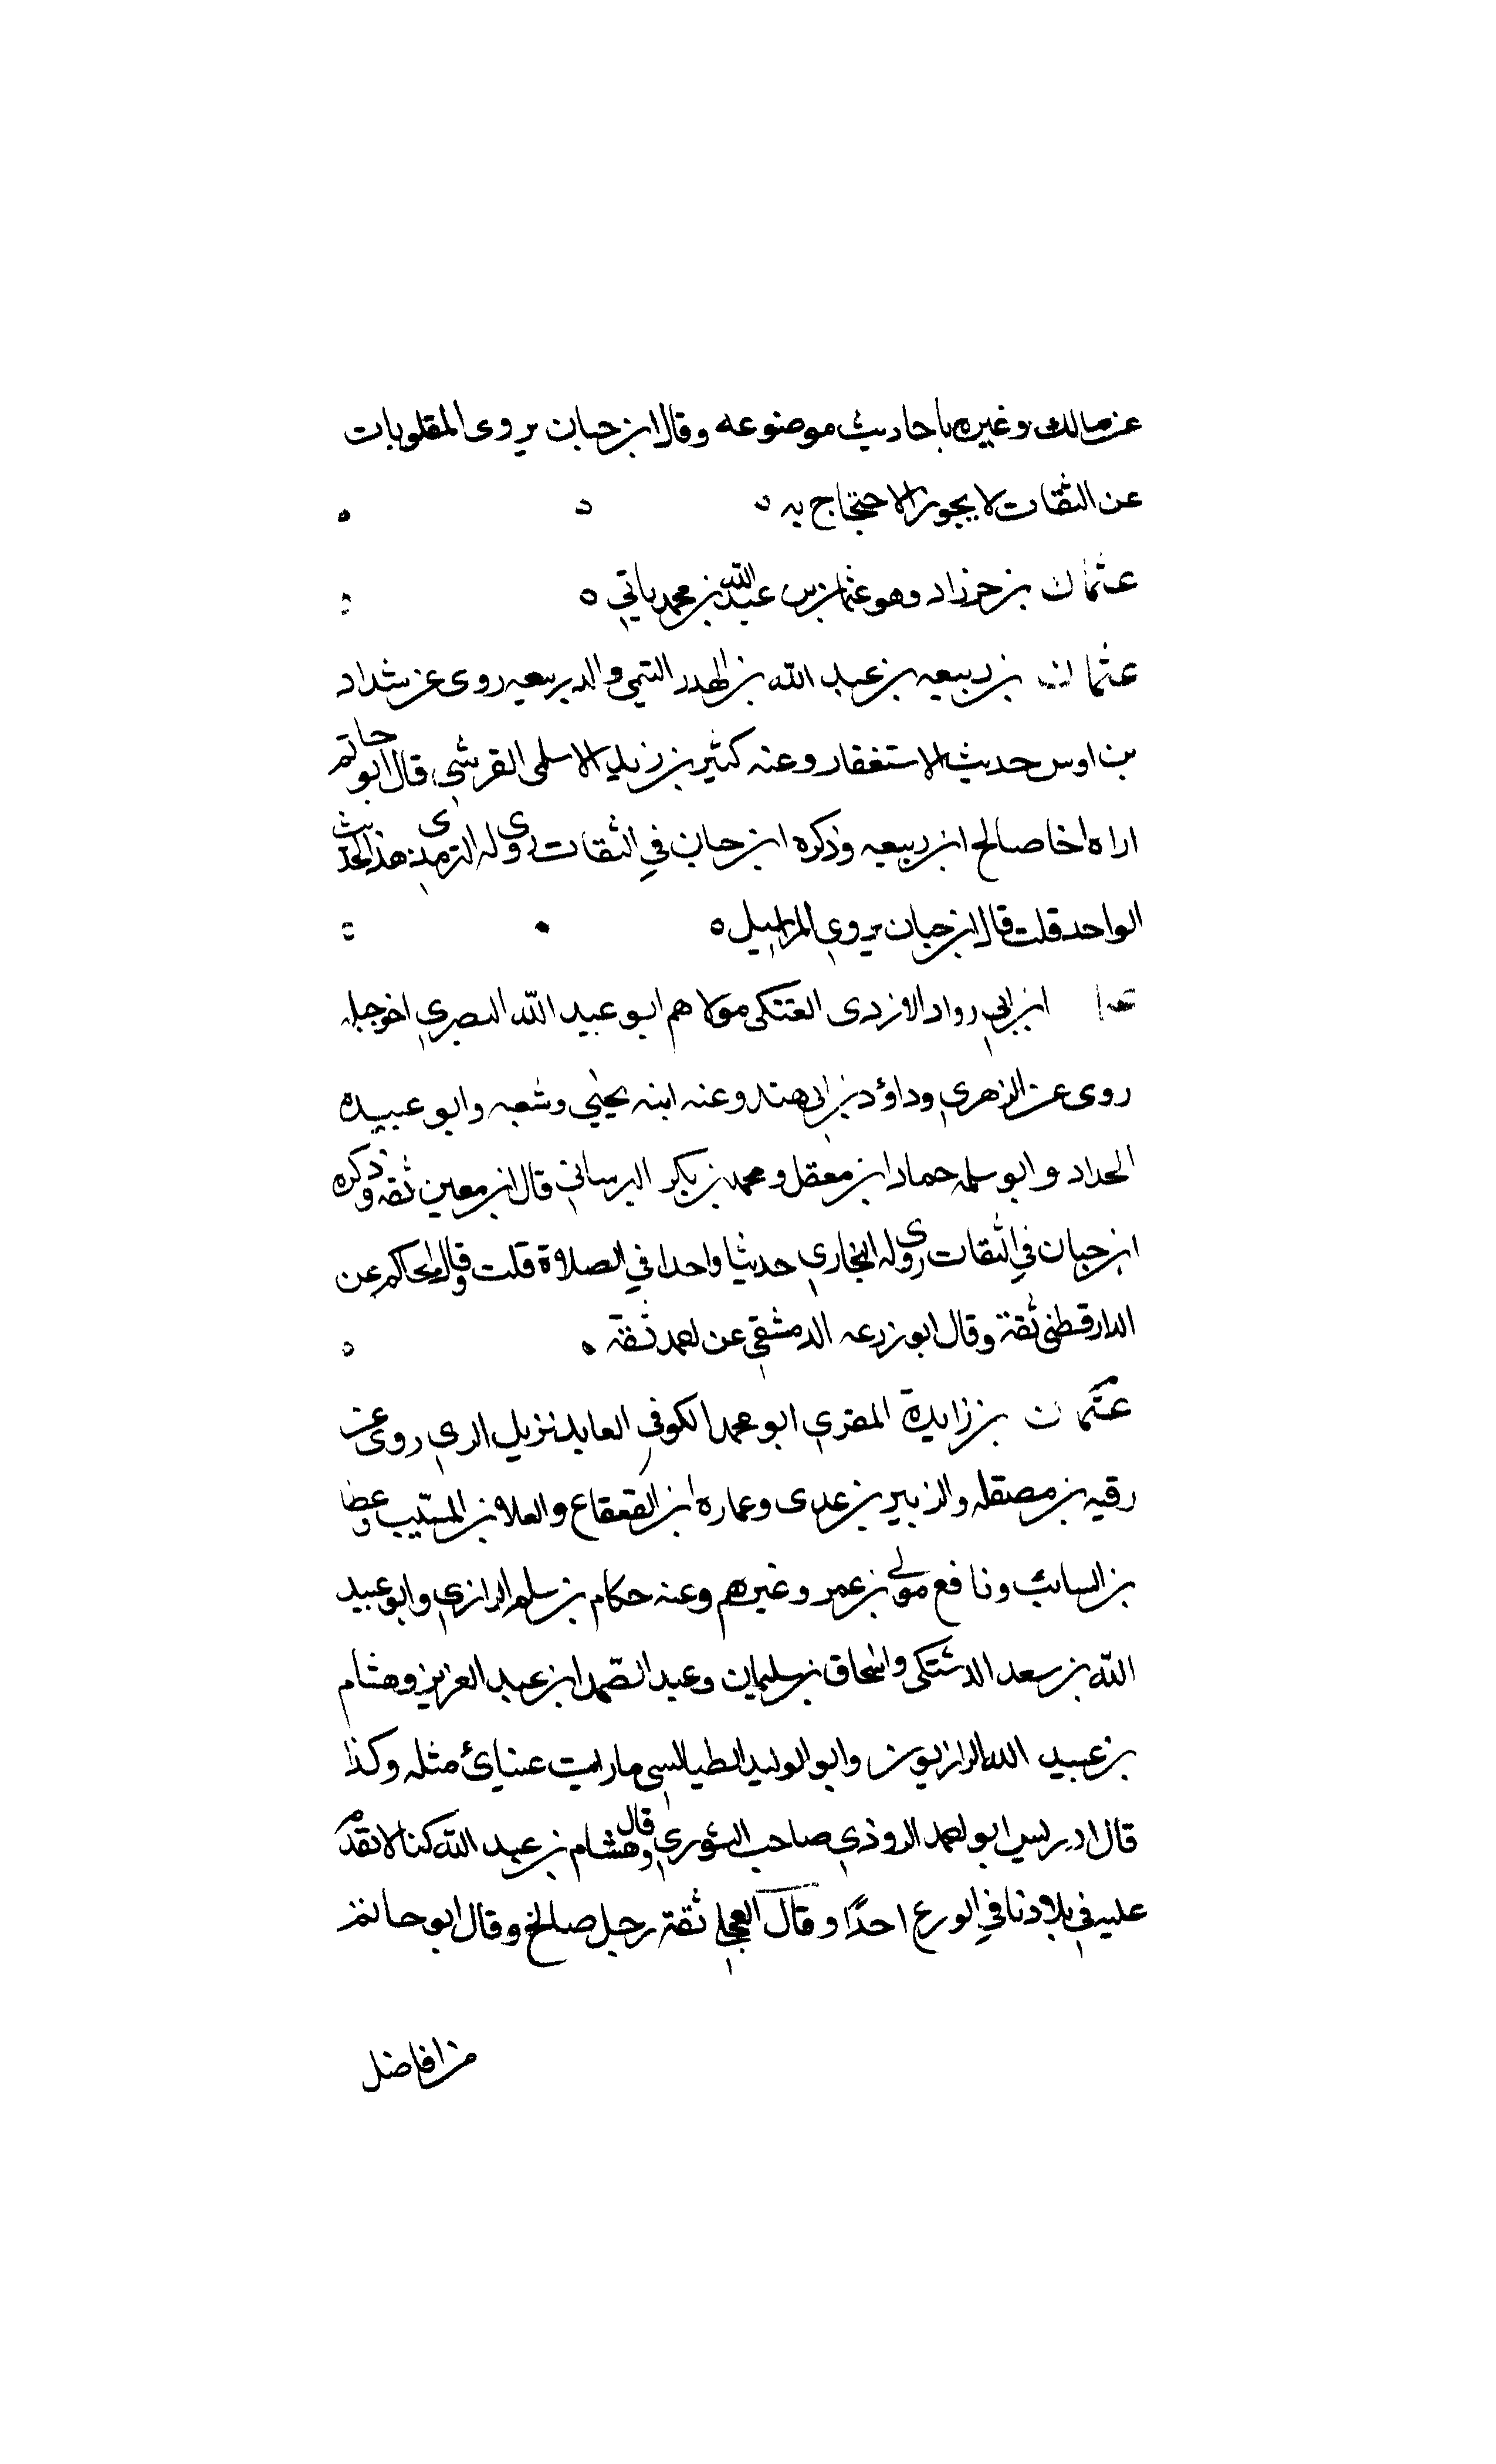 عن مالك وغيره باحاديث موضوعه وقال ابن حبان يروى المقلوبات
عن الثقات لا يجوز الاحتجاج به ه
عثمان بن خرزاد وهو عثمان بن عبد الله بن محمد ياتي ه
عثمان بن ربيعه بن عبد الله بن الهدير التيمي والد ربيعه روى عن شداد
بن اوس حديث الاستغفار وعنه كثير بن زيد الاسلمى القرشي قال ابو حاتم
اراه اخا صالح ابن ربيعه وذكره ابن حبان في الثقات روى له الترمذى هذا الحديث
الواحد قلت قال ابن حبان يروي المراسيل ه
ابن ابي رواد الازدى العتكى مولاهم ابو عبد الله البصري اخو جبله
روى عن الزهري وداؤد بن ابى هند وعنه ابنه يحيي وشعبه وابو عبيده
الحداد وابو سلمه حماد ابن معقل ومحمد بن بكر البرساني قال ابن معين ثقه وذكره
ابن حبان في الثقات روى له البخاري حديثا واحدا في الصلاة قلت وقال الحاكم عن
الدارقطني ثقة وقال ابو زرعه الدمشقي عن احمد ثقة
عثمان بن زايدة المقري ابو محمد الكوفي العابد نزيل الري روى عن
رقيه بن مصقله والزبير بن عدى وعماره ابن القعقاع والعلا بن المسيب وعطا
بن السائب ونافع مولى بن عمر وغيرهم وعنه حكام بن سلم الرازي وابو عبيد
الله بن سعد الدشتكى واسحاق بن سليمان وعبد الصمد ابن عبد العزيز وهشام
بن عبيد الله الرازيون وابو الوليد الطيالسي ما رايت عيناى مثله وكذا
قال ادريس ابو احمد الروذي صاحب الثوري وقال هشام بن عبد الله كنا لا نقدم
عليه في بلادنا في الورع احدًا وقال العجلي ثقة رجل صالح وقال ابو حاتم
من افاضل